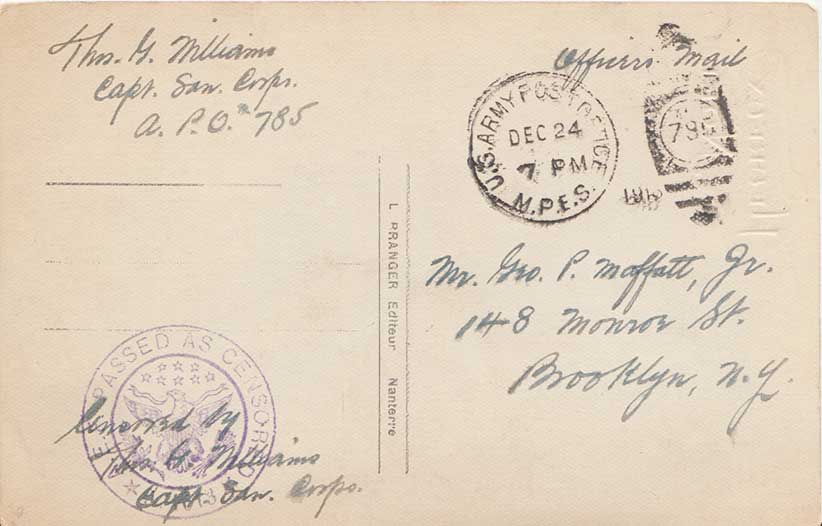 Thos. G. Williams
Capt. San. Corps.
A. P. O. # 785
Officers Mail
U.S. ARMY POST OFFICE
DEC 24
7 PM
M.P.E.S.
Mr. Geo. P. Moffatt, Jr.
148 Monroe St.
Brooklyn, N.Y.
L. PRANGER Editeur Nanterre
PASSED AS CENSORED
Censored by
Thos. G. Williams
Capt. San. Corps.